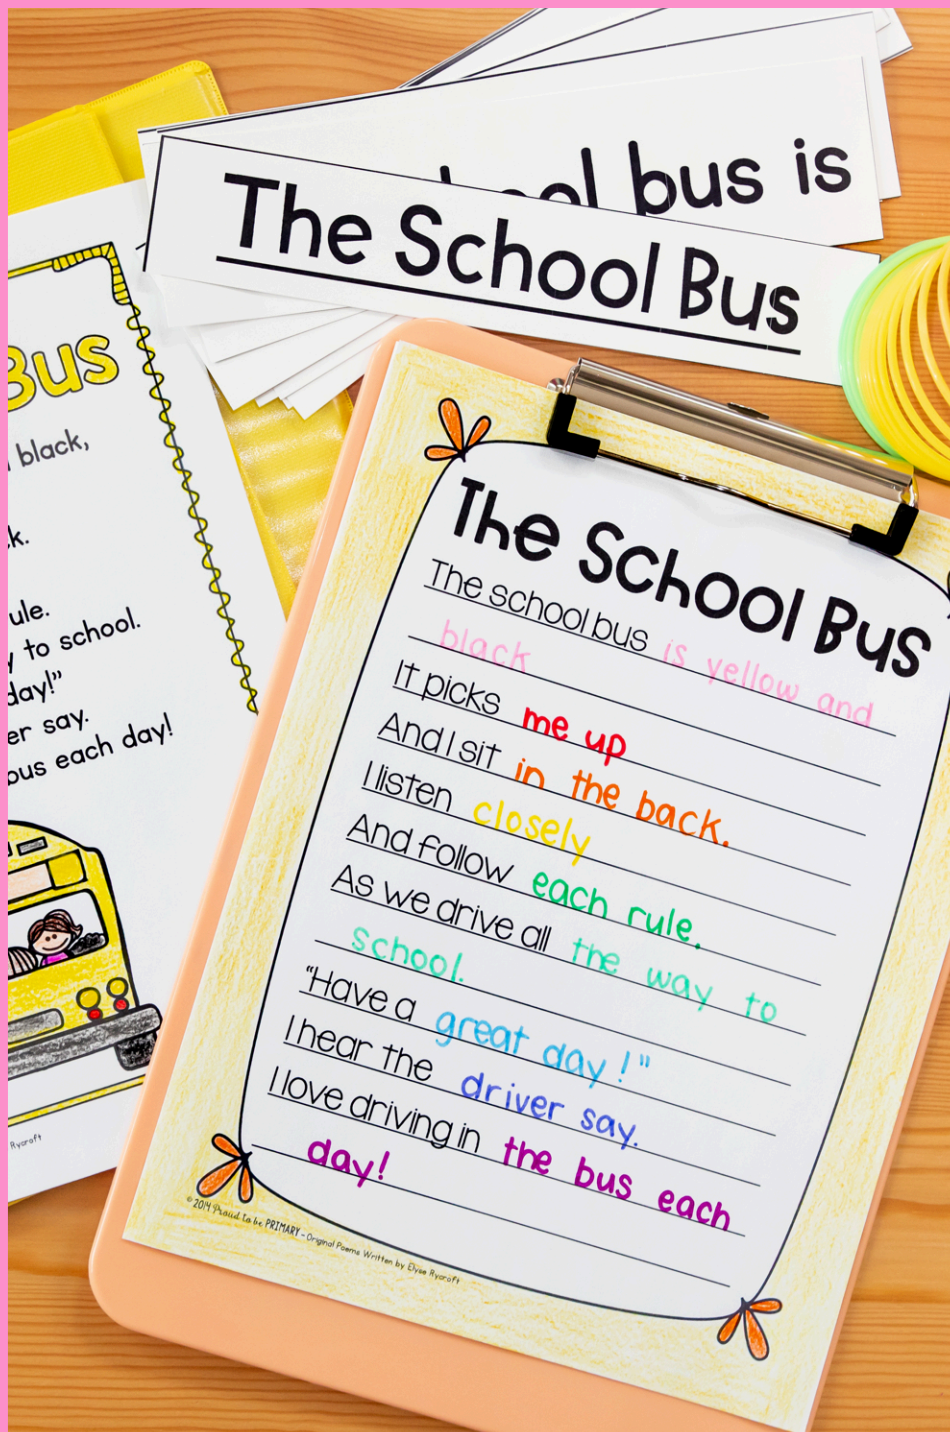 bus is
The School Bus
Bus
black,
k.
ule.
y to school.
day!"
er say.
ous each day!
Rycroft
The School Bus
The school bus is yellow and
black
It picks me up
And I sit in the back.
I listen closely
And follow each rule.
As we drive all the way to
school.
"Have a great day!"
I hear the driver say.
I love driving in the bus each
day!
© 2014 Proud to be PRIMARY - Original Poems Written by Elyse Rycroft